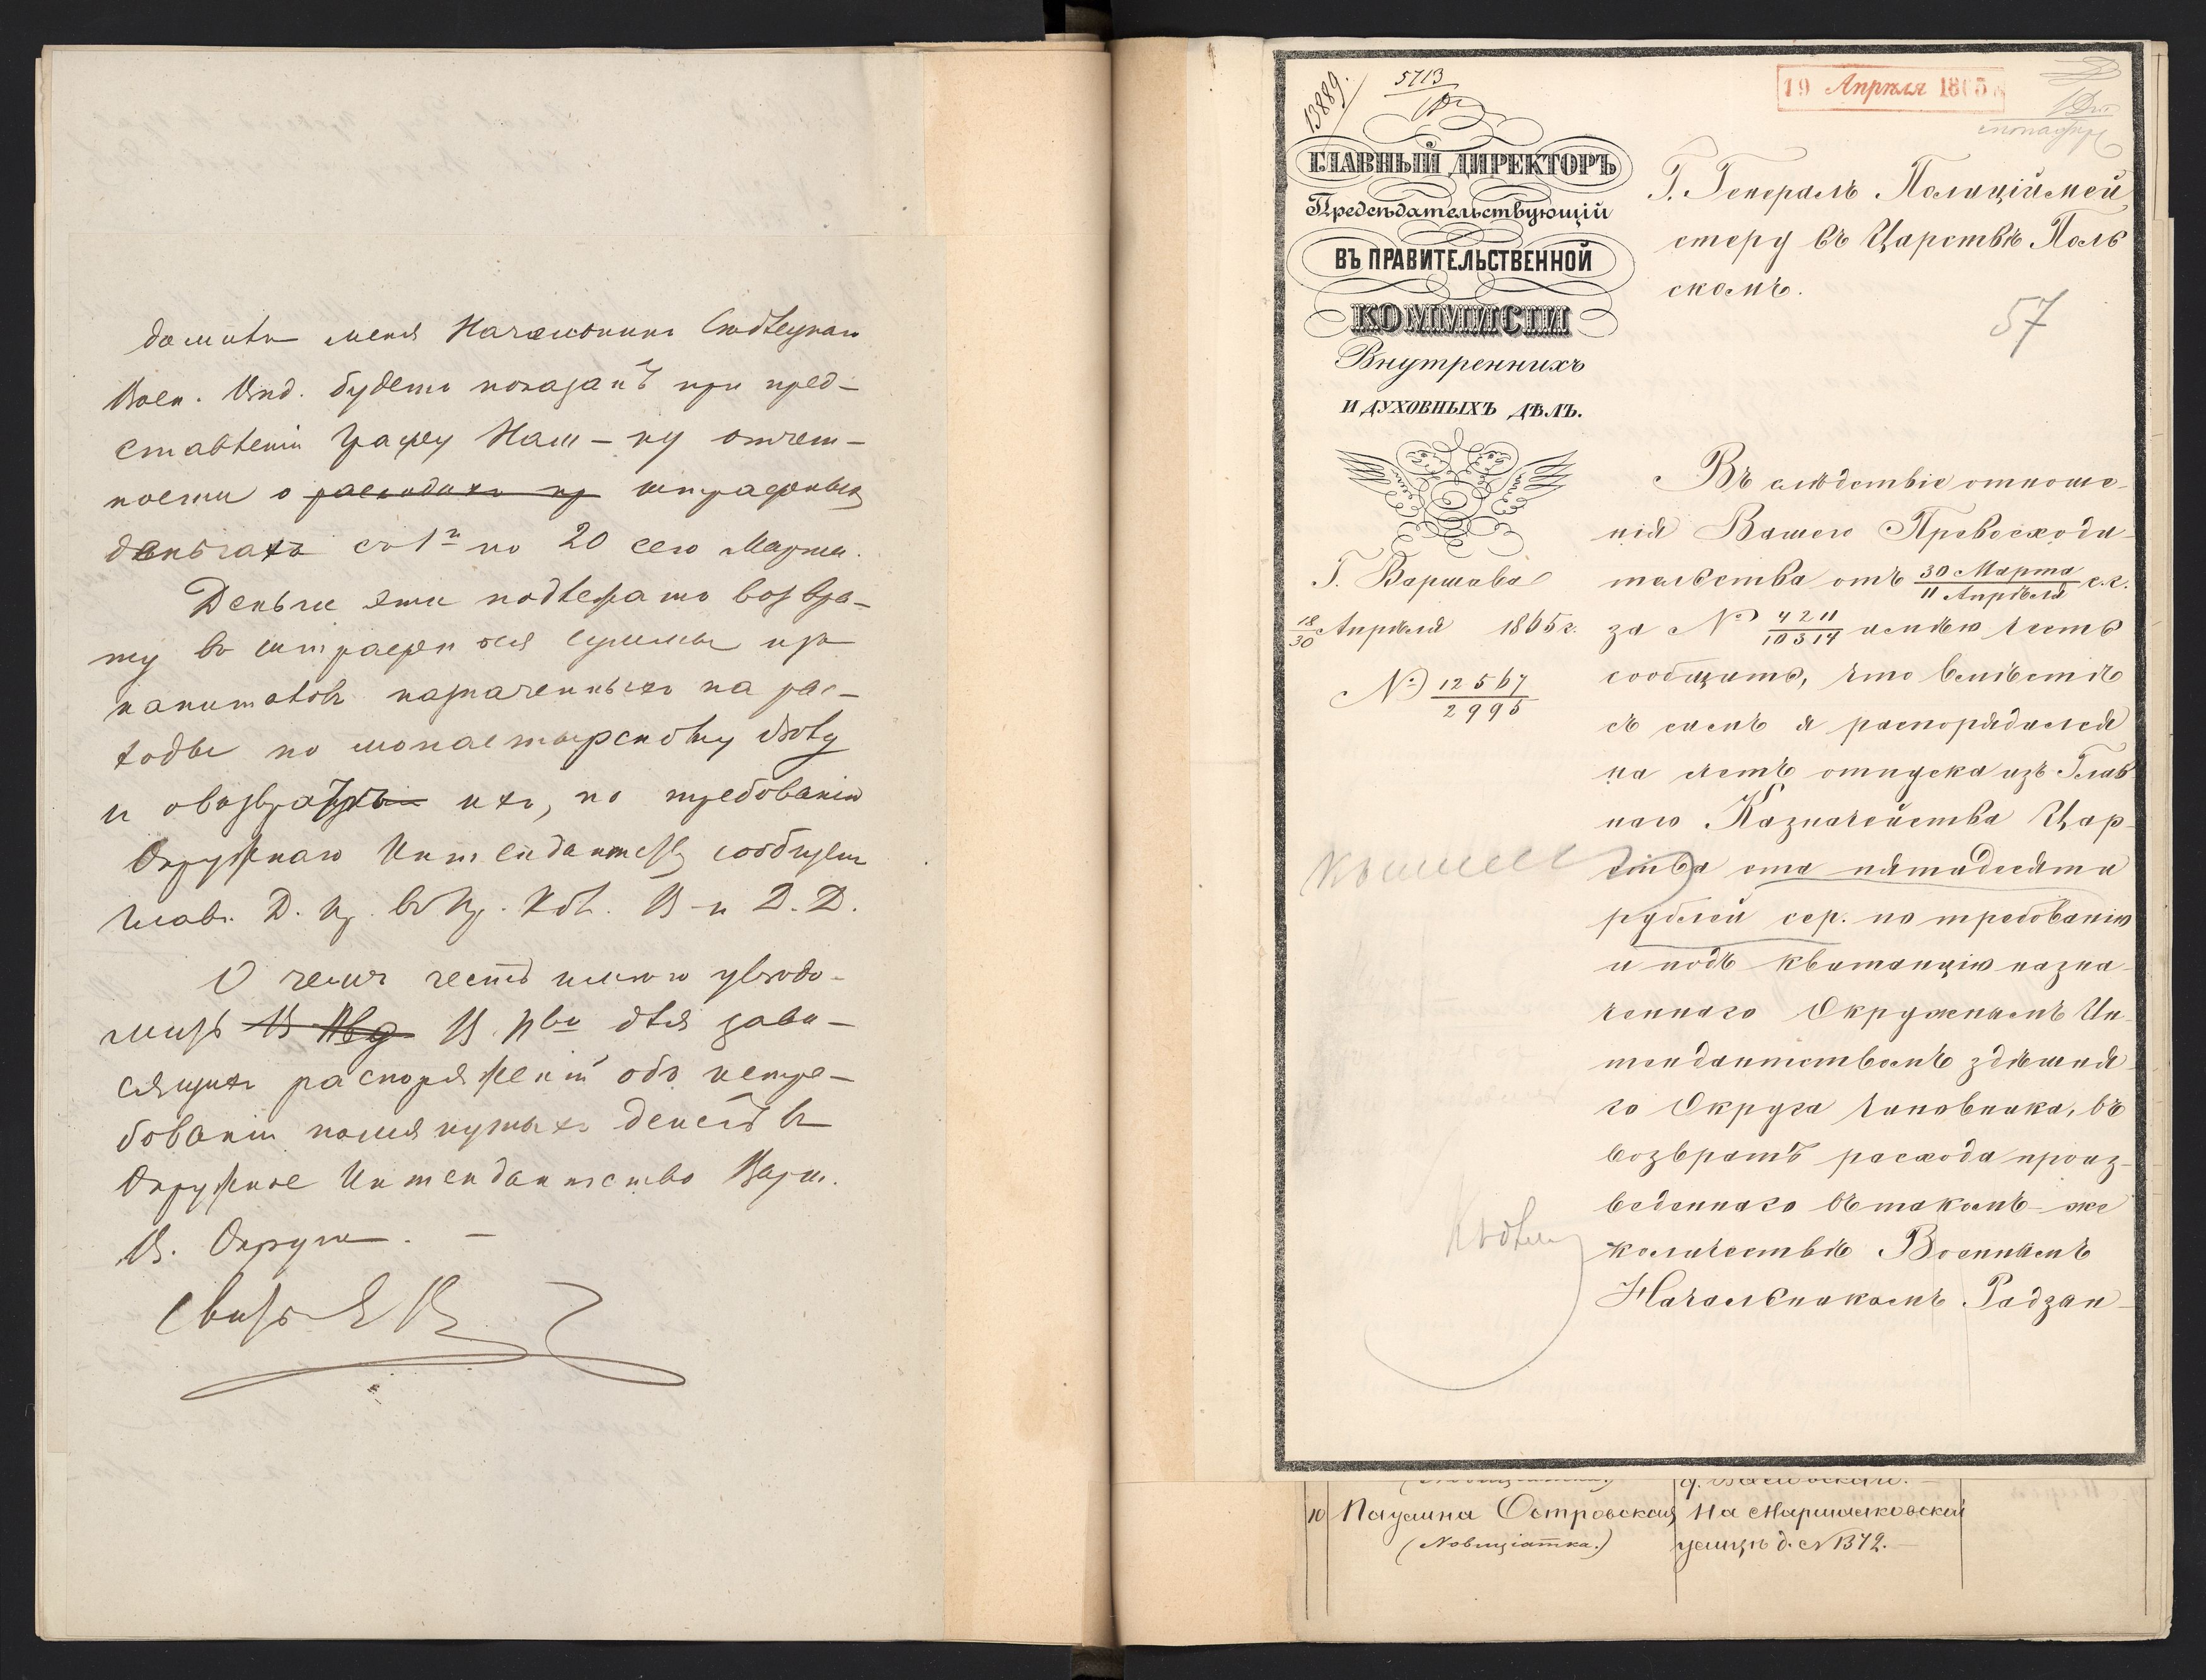 домить меня Начальникъ Сювлецкаго
Воен. Отд. будетъ показанъ при пред-
ставленіи Графу Нам-ку отчет-
ности о расходахъ пр штрафныхъ
деньгахъ съ 1го по 20 сего Марта.
Деньги эти подлежатъ возвра-
ту въ штрафныя суммы изъ
капиталовъ назначенныхъ на рас-
ходы по монастырскому дѣлу
и о возвратѣ ихъ, по требованію
Окружнаго Интендантства, сообщены
Глав. Д. Пр. въ Пр. Ком. В. и Д. Д.
О чемъ честь имѣю увѣдо-
мить В. Пво для зави-
сящихъ распоряженій объ истре-
бованіи помянутыхъ денегъ въ
Окружное Интендантство Варш.
В. Округа. -
13889.
5713
19 Апрѣля 1865
ГЛАВНЫЙ ДИРЕКТОРЪ
Предсѣдательствующій
ВЪ ПРАВИТЕЛЬСТВЕННОЙ
КОММИСІИ
Внутреннихъ
И ДУХОВНЫХЪ ДѢЛЪ.
Г. Варшава
18/30 Апрѣля 1865 г.
№ 12567/2995
Г. Генералъ Полиціймей
стеру въ Царствѣ Поль
скомъ.
57
Въ слѣдствіе отноше-
нія Вашего Превосходи-
тельства отъ 30 Марта/11 Апрѣля с.г.
за № 4211/10314 имѣю честь
сообщить, что вмѣстѣ
съ симъ я распорядился
на счетъ отпуска изъ Глав
наго Казначейства Цар-
ства ста пятидесяти
рублей сер. по требованію
и подъ квитанцію назна-
ченнаго Окружнымъ Ин-
тендантствомъ здѣшня-
го Округа чиновника, въ
возвратъ расхода произ-
веденнаго въ такомъ-же
количествѣ Военнымъ
Начальникомъ Радзин-
Къ дѣлу
10 Паулина Островская На Маршалковской
(Новиціатка.) улицѣ д. № 1372.